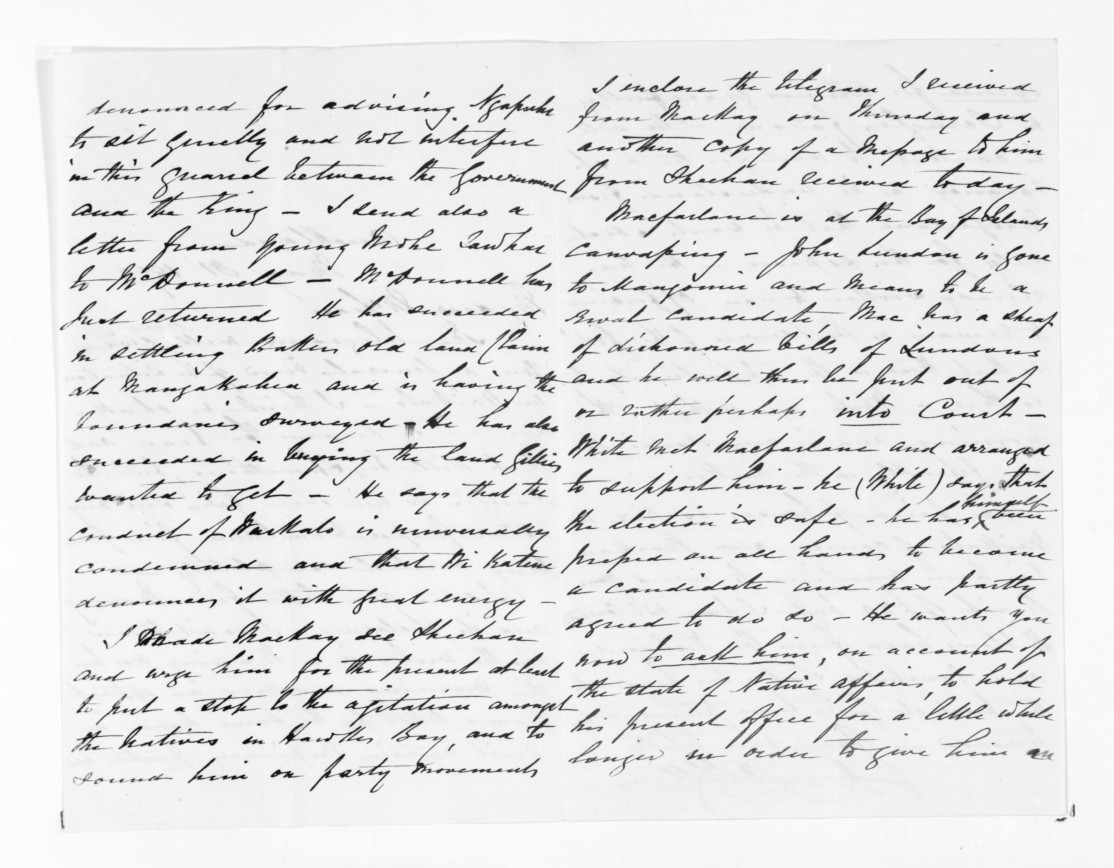 denounced for advising Ngapuhi
to sit quietly and not interfere
in this quarrel between the Government
and the King — I send also a
letter from young Mohe Tawhai
to McDonnell — McDonnell has
just returned He has succeeded
in settling Bakers old land Claim
at Mangakahea and is having the
boundaries surveyed - He has also
succeeded in buying the land Gillies
wanted to get — He says that the
conduct of Waikato is universally
condemned and that Wi Katene
denounces it with great energy —
I made Mackay see Sheehan
and urge him for the present at least
to put a stop to the agitation amongst
the Natives in Hawkes Bay, and to
sound him on party movements
I enclose the telegram I received
from Mackay on Thursday and
another copy of a Message to him
from Sheehan received to day —
Macfarlane is at the Bay of Islands
canvassing — John Lundon is gone
to Mangonui and means to be a
rival candidate, Mac has a sheaf
of dishonored bills of Lundons
and he will thus be put out of
or rather perhaps into Court —
White met Macfarlane and arranged
to support him — he (White) says that
the election is safe - he has himself been
pressed on all hands to become
a candidate and has partly
agreed to do so — He wants you
now to ask him, on account of
the state of Native affairs, to hold
his present office for a little while
longer in order to give him an